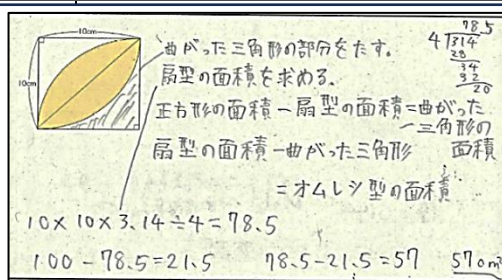 10cm
10cm
曲がった三角形の部分をたす。
扇型の面積を求める。
正方形の面積－扇型の面積＝曲がった三角形の面積
扇型の面積－曲がった三角形
＝オムレツ型の面積
78.5
4)314
28
34
32
20
10×10×3.14÷4=78.5
100-78.5=21.5 78.5-21.5=57 57cm